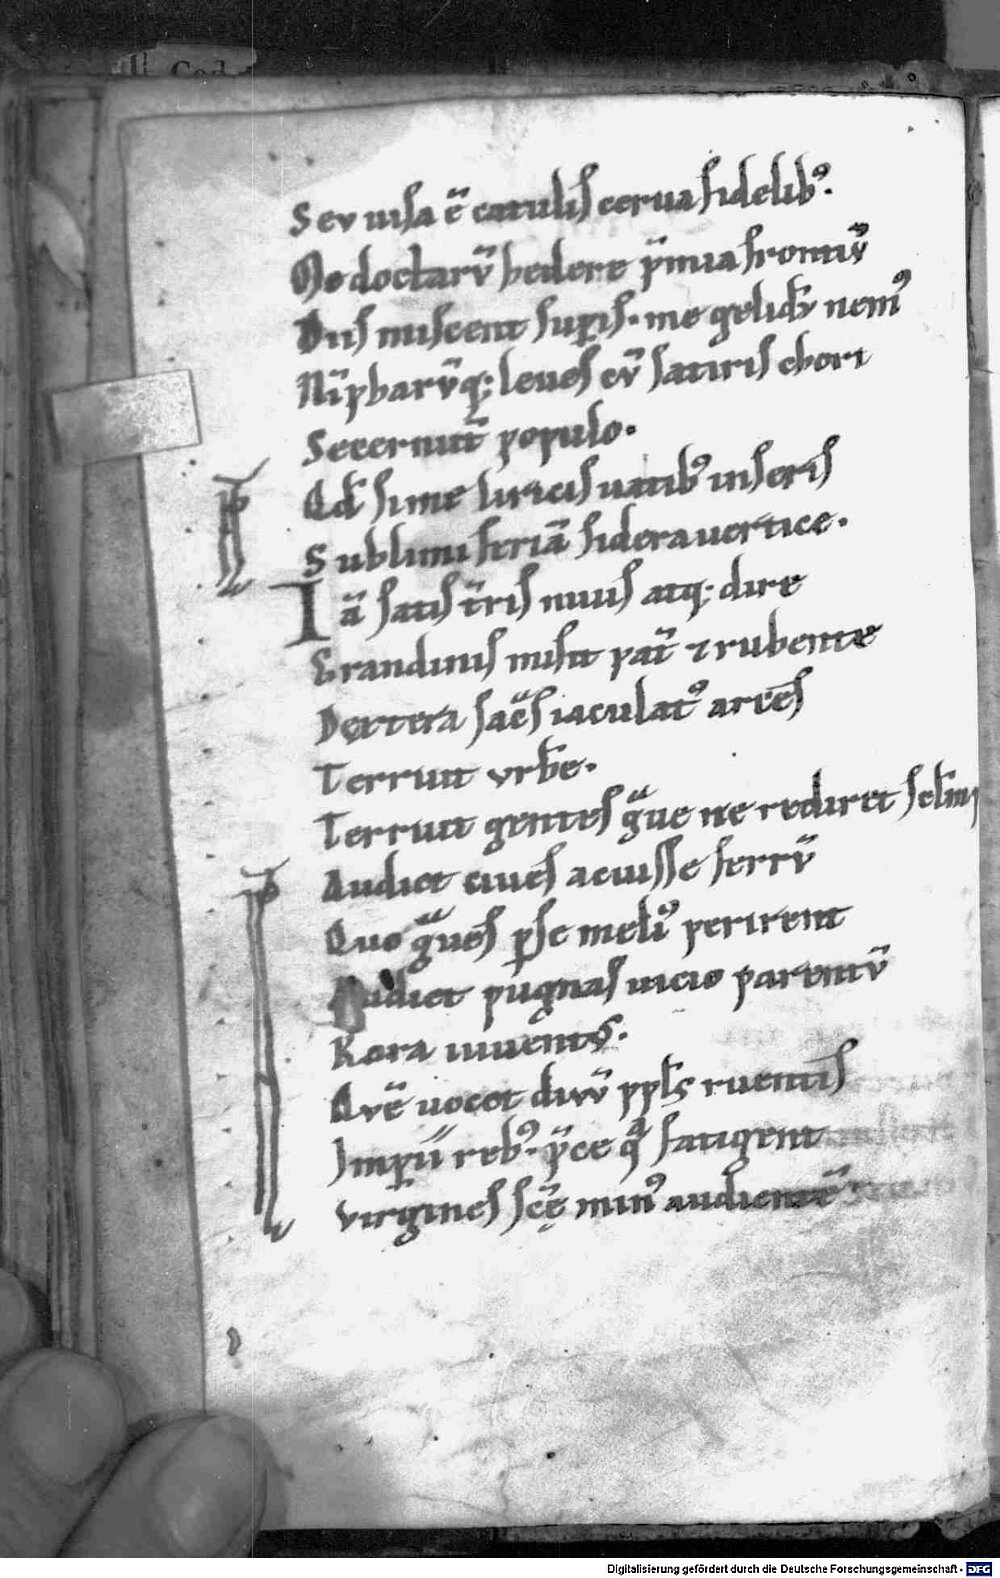 Cod
Sev uisa ē catulis cerua fidelib᾽.
Me doctarv̄ hedere p̄mia frontiv̄
Diis miscent sup̄is. me gelidv̄ nem᾽
Nīpharv̄q; leues cv̄ satiris chori
Secernunt̄ populo.
Qd̄ si me liricis uatib᾽ inseris
Sublimi feriā sidera uertice.
Iā satis t̄ris niuis atq; dire
Grandinis misit pat̄ ⁊ rubente
Dextera sac̄s iaculat᾽ arces
Terruit vrbē.
Terruit gentes gͣue ne rediret sc̄lm
Audiet ciues acuisse ferrv̄
Quo gͣues p̱se meli᾽ perirent
Audiet pugnas uicio parentv̄
Rara iuuentus.
Qvē uocet divv̄ pp̄ls ruentis
Imp̄ii reb᾽. p̄ce qͣ fatigent
virgines sc̄ę min᾽ audientē
Digitalisierung gefördert durch die Deutsche Forschungsgemeinschaft - DFG